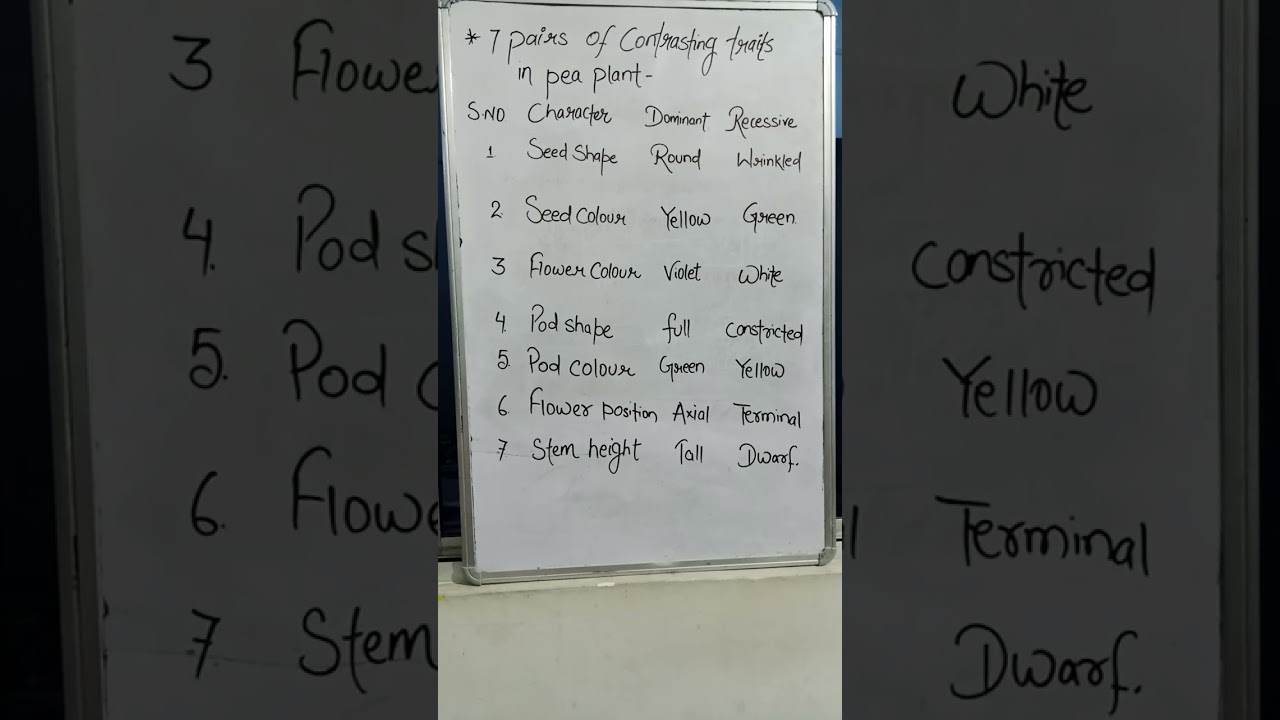 * 7 pairs of Contrasting traits
in pea plant-
S.NO Character Dominant Recessive
1 Seed Shape Round Wrinkled
2. Seed Colour Yellow Green.
3 Flower Colour Violet White
4. Pod shape full Constricted
5. Pod colour Green Yellow
6. Flower position Axial Terminal
7 Stem height Tall Dwarf.